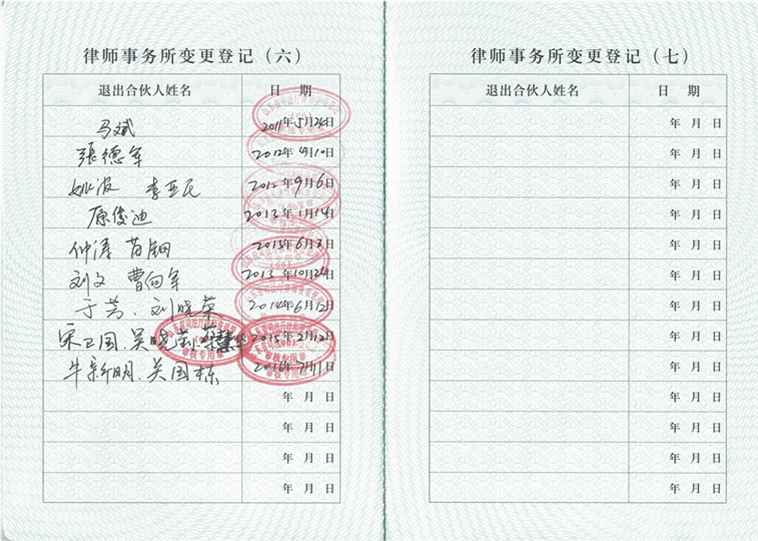 律师事务所变更登记（六）
退出合伙人姓名 日 期
马斌 2011年5月24日
張德军 2012年4月10日
姚波 李亚民 2012年9月6日
原俊迪 2013年1月14日
仲涛 苗钢 2013年6月3日
刘文 曹向军 2013年10月24日
于芳、刘晓华 2014年6月12日
宋卫国、吴晓 2015年2月12日
牛新明、关国栋 2016年7月1日
年 月 日
年 月 日
年 月 日
年 月 日
律师事务所变更登记（七）
退出合伙人姓名 日 期
年 月 日
年 月 日
年 月 日
年 月 日
年 月 日
年 月 日
年 月 日
年 月 日
年 月 日
年 月 日
年 月 日
年 月 日
年 月 日